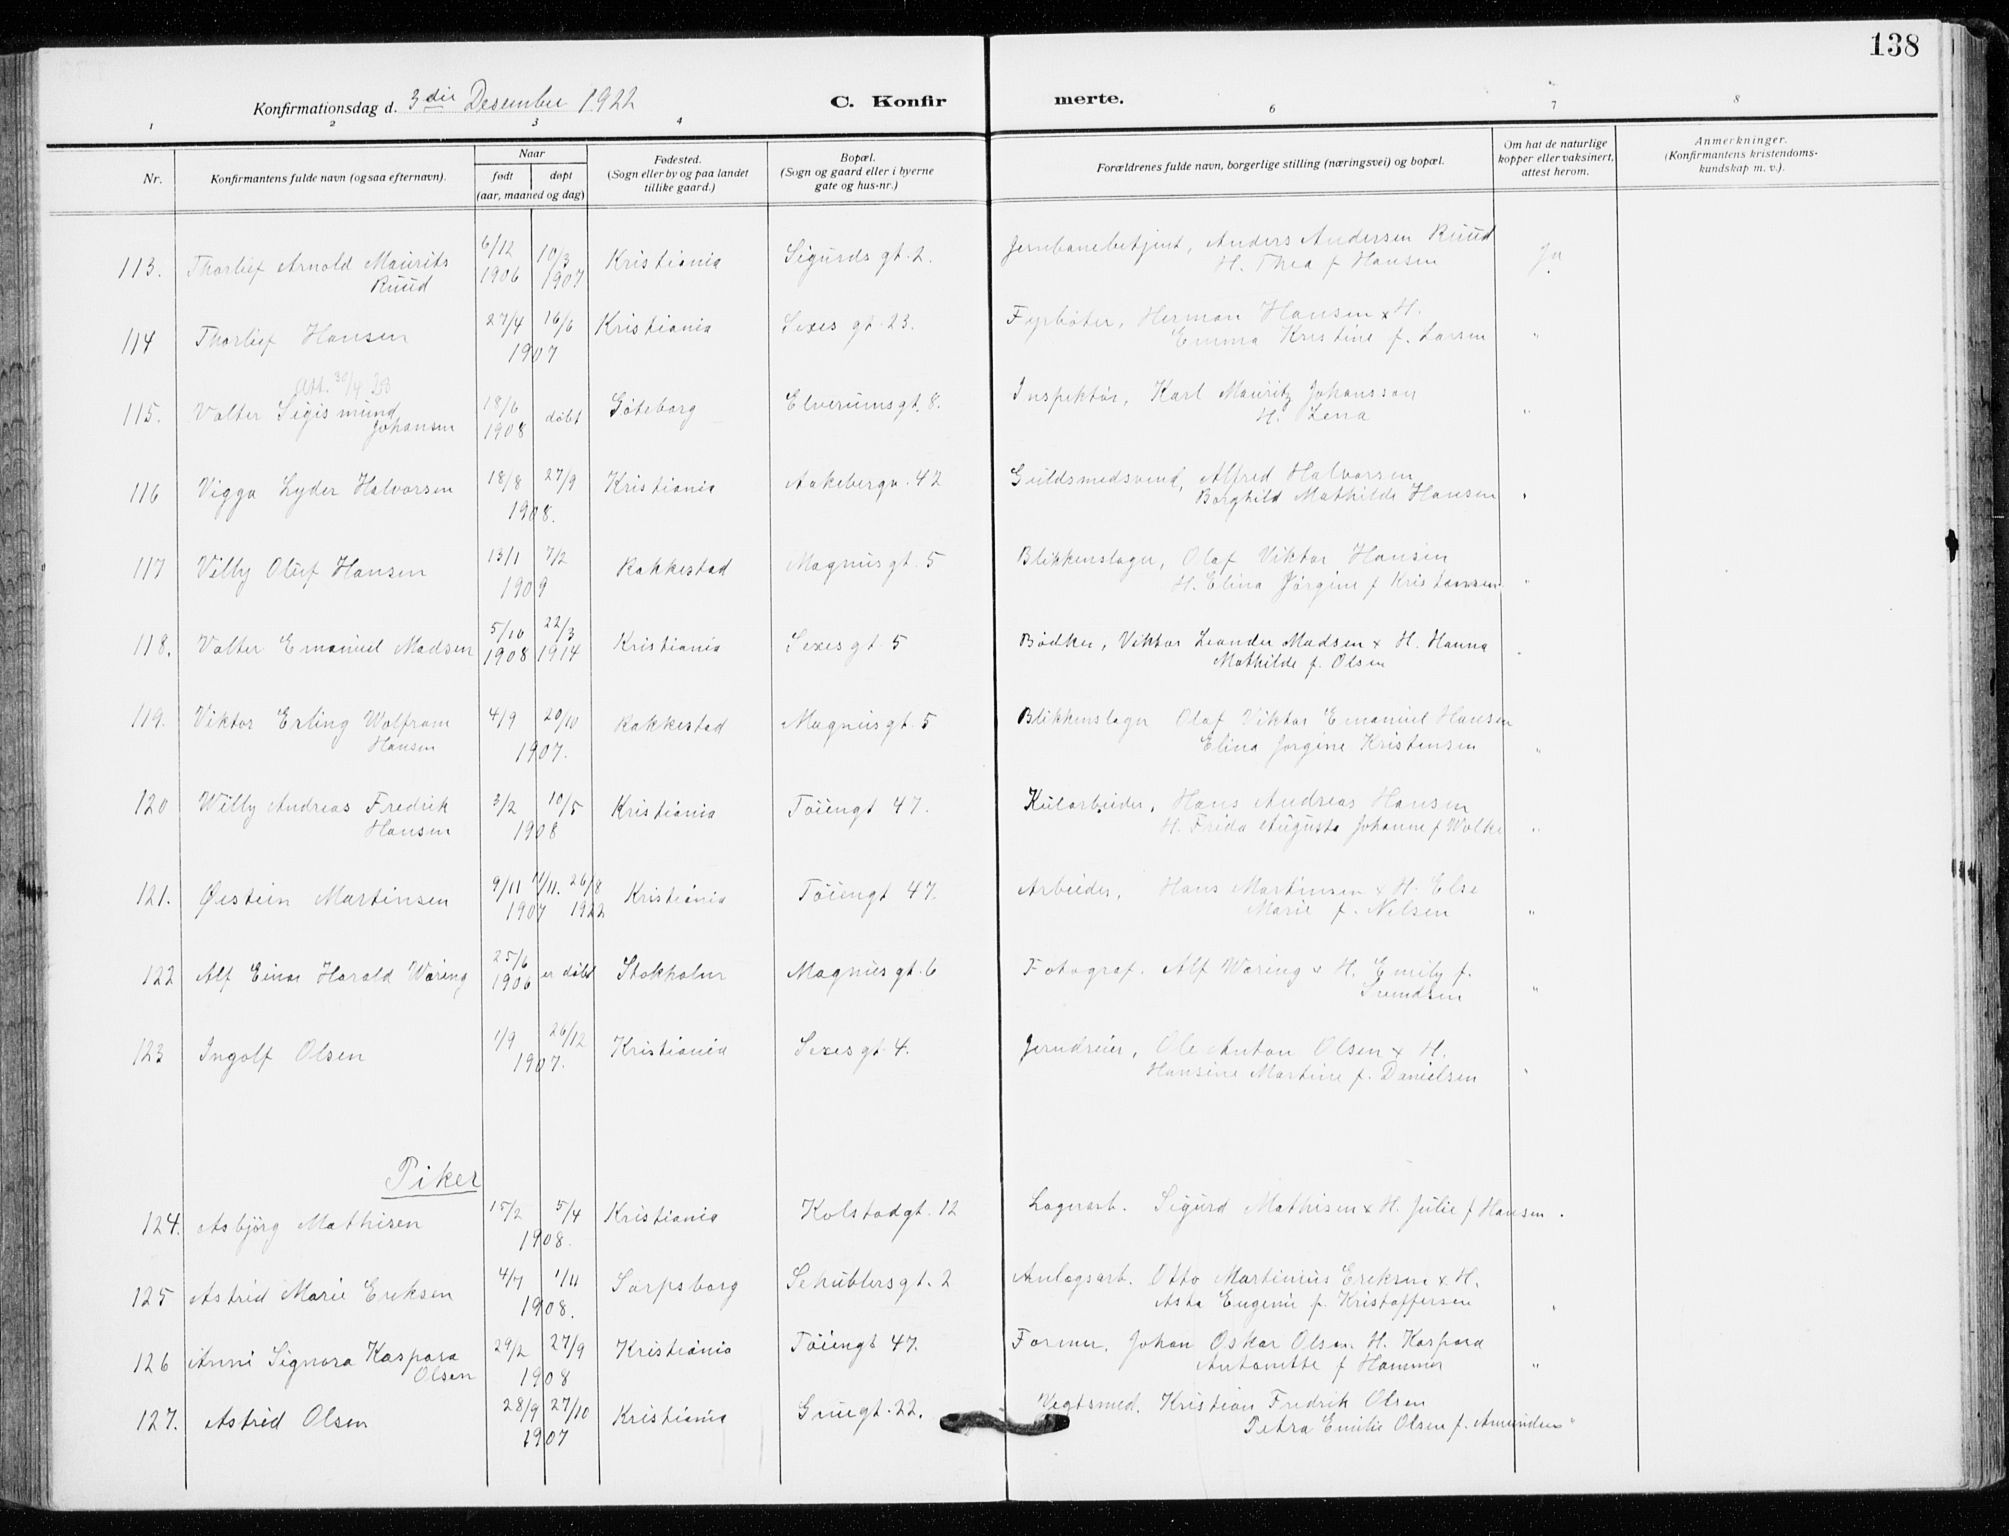 138
Konfirmationsdag d. 3die Desember 1922
C. Konfir merte.
1 2 3 4 6 7 8
Nr.
Konfirmantens fulde navn (ogsaa efternavn).
Naar
født
døpt
(aar, maaned og dag)
Fødested.
(Sogn eller by og paa landet
tillike gaard.)
Bopæl.
(Sogn og gaard eller i byerne
gate og hus-nr.)
Forældrenes fulde navn, borgerlige stilling (næringsvei) og bopæl.
Om hat de naturlige
kopper eller vaksinert,
attest herom.
Anmerkninger.
(Konfirmantens kristendoms-
kundskap m. v.).
113. Thorlief Arnold Maurits 6/12 10/3 Kristiania Sigurds gt. 2. Jernbanebetjent, Anders Andersen Ruud Ja
Ruud 1906 1907 H. Thea f Hansen
114 Thorlief Hansen 27/4 16/6 Kristiania Sexes gt. 23. Fyrbøter, Herman Hansen x H.
1907 Emma Kristine f. Larsen "
Att. 30/4
115. Valter Sigismund 18/6 døbt Göteborg Elverumsgt. 8. Inspektør, Karl Mauritz Johansson
Johansen 1908 H. Lena "
116 Viggo Lyder Halvorsen 18/8 27/9 Kristiania Aakebergv. 42 Guldsmedsvend, Alfred Halvorsen
1908. Borghild Mathilde Hansen "
117 Villy Oluf Hansen 13/1 7/2 Rakkestad Magnusgt. 5 Blikkenslager, Olaf Viktor Hansen
1909 H. Elina Jørgine f Kristensen "
118. Valter Emanuel Madsen 5/10 22/3 Kristiania Sexesgt 5 Bødker, Viktor Leander Madsen x H. Hanna
1908 1914 Mathilde f. Olsen "
119. Viktor Erling Wolfram 4/9 20/10 Rakkestad Magnusgt. 5 Blikkenslager Olaf Viktor Emanuel Hansen
Hansen 1907. Elina Jørgine Kristensen "
120 Willy Andreas Fredrik 3/2 10/5 Kristiania Töiengt 47. Kularbeider, Hans Andreas Hansen
Hansen 1908 H. Frida Augusta Johanne f Wolke "
121. Øistein Martinsen 9/11 11/11. 26/8 Kristiania Töiengt 47. Arbeider, Hans Martinsen x H. Else
1907 1922 Marie f. Nilsen "
122 Alf Einar Harald Wäring 25/6 er døbt Stokholm Magnusgt. 6 Fotograf. Alf Wäring x H. Emily f.
1906 Svendsen "
123 Ingolf Olsen 1/9 26/12 Kristiania Sexesgt. 4. Jerndreier, Ole Anton Olsen x H.
1907. Hansine Martine f. Danielsen "
Piker
124. Asbjörg Mathisen 15/2 5/4 Kristiania Kolstadgt. 12 Lagerarb. Sigurd Mathisen x H. Julie f Hansen "
1908.
125 Astrid Marie Eriksen 4/7 1/11 Sarpsborg Schüblersgt. 2 Anlægsarb. Otto Martinius Eriksen x H.
1908. Asta Eugenie f. Kristoffersen "
126 Anni Signora Kaspara 29/2 27/9 Kristiania Töiengt 47. Former. Johan Oskar Olsen. H. Kaspara
Olsen 1908 Antonette f Hammer "
127. Astrid Olsen 28/9 27/10 Kristiania Gruegt. 22. Vegtsmed. Kristian Fredrik Olsen
1907 Petra Emilie Olsen f. Amundsen "